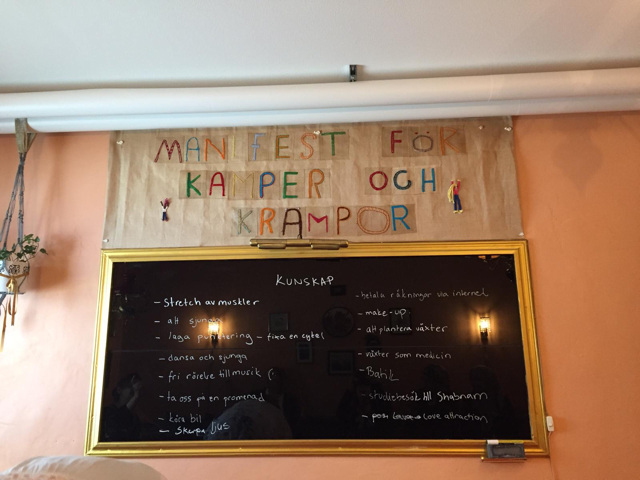 MANIFEST FÖR
KAMPER OCH
KRAMPOR
KUNSKAP
- Stretch av muskler
- att sjunga
- laga punktering - fixa en cykel
- dansa och sjunga
- fri rörelse till musik (
- ta oss på en promenad
- köra bil
- Skapa ljus
- betala räkningar via internet
- make-up
- att plantera växter
- växter som medicin
- Batik
- studiebesök till Shabnam
- love attraction